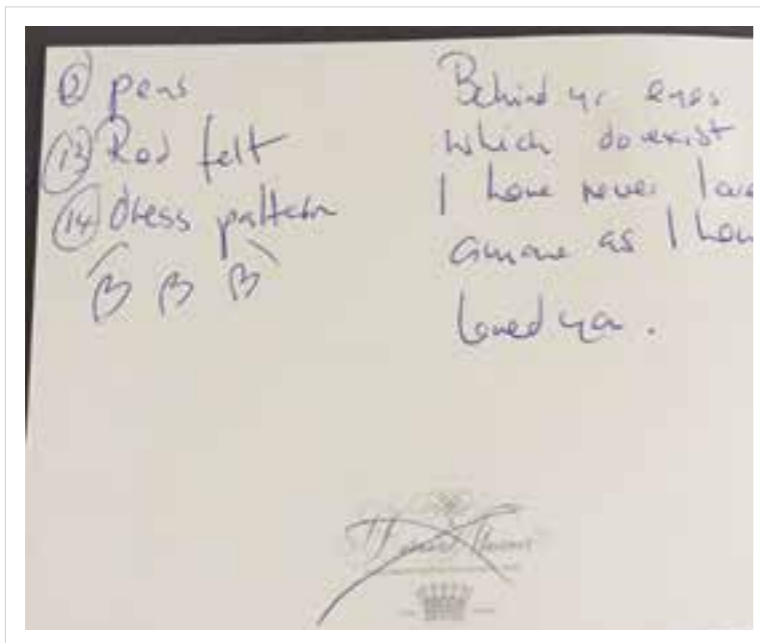 ⑫ pens
⑬ Red felt
⑭ dress pattern
Behind yr eyes
which do exist
I have never love
anyone as I hav
loved you.